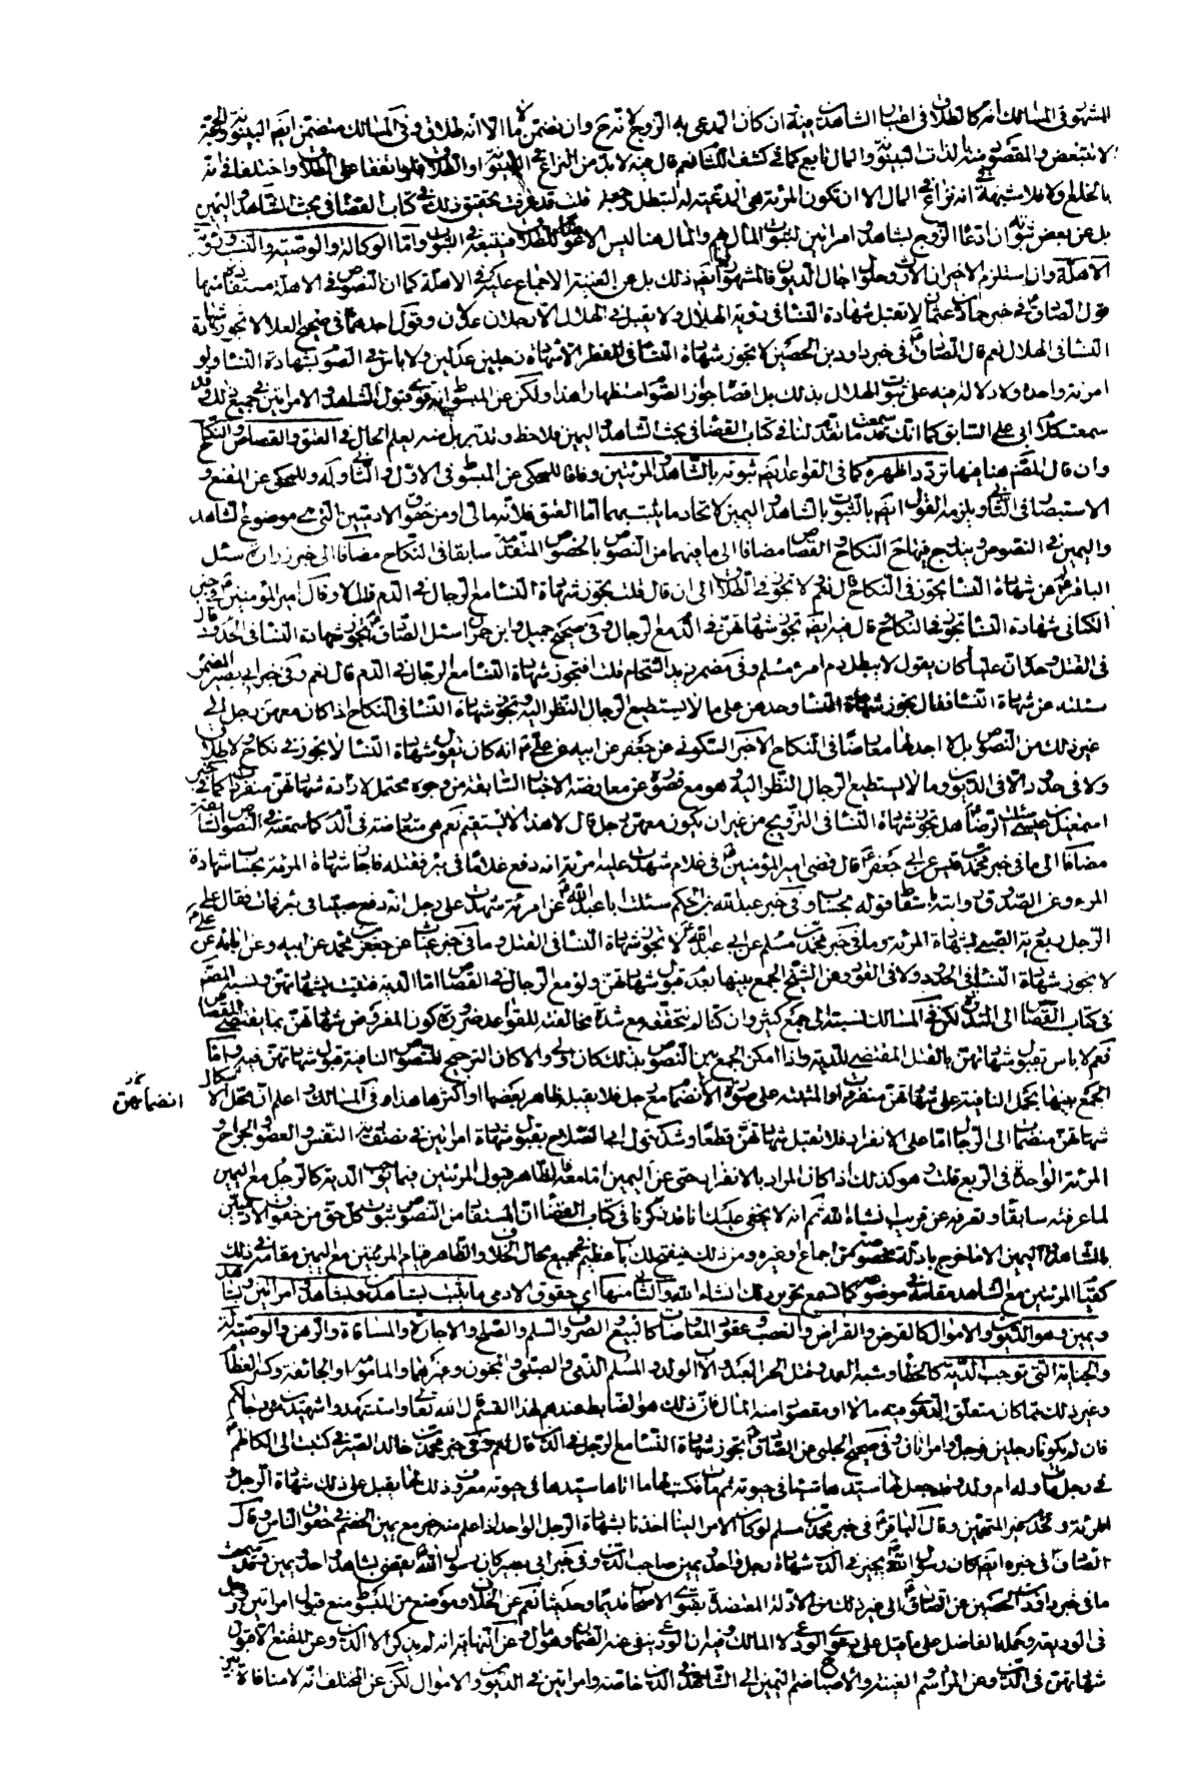 المشهور في المسالك انه كالطلاق في اعتبار الشاهدين بينة ان كان المدعي به الزوج لانه وان تضمن مالا الا انه طلاق وفي المسالك متضمن ايضا البينونة والحجة
لا تتبعض والمقصود منه لذاته البينونة والمال تابع كما في كشف اللثام قال فيه لا بد من النزاع في البينونة او الطلاق فلو اتفقا على الطلاق واختلفا في انه
بالخلع او لا فلا شبهة في انه نزاع في المال الا ان تكون المرئة هي المدعية له قلت قد عرفت تحقيق ذلك في كتاب القضاء في بحث الشاهد واليمين
بل عن بعض ثبوته ان ادعاه الزوج بشاهد وامراتين لثبوت المال والمال هنا ليس الا عوض الطلاق فيتبعه في الثبوت واما الوكالة والوصية والنسب ورؤية
الاهلة وان استلزم الاخيران الارث وحلول اجال الديون فالمشهور ايضا ذلك بل عن الغنية الاجماع عليه في الاهلة كما ان النصوص في الاهلة مستفاضة منها
قول الصادق في خبر حماد بن عثمان لا تقبل شهادة النساء في رؤية الهلال ولا يقبل في الهلال الا رجلان عدلان وقول احدهما في صحيح العلا لا تجوز شهادة
النساء في الهلال نعم قال الصادق في خبر داود بن الحصين لا تجوز شهادة النساء في الفطر الا شهادة رجلين عدلين ولا باس في الصوم بشهادة النساء ولو
امرئة واحدة ولا دلالة فيه على ثبوت الهلال بذلك بل اقصاه جواز الصوم استظهارا هذا ولكن عن المبسوط انه قوى قبول الشاهد والامراتين في جميع ذلك وقد
سمعت كلام ابي علي السابق كما انك قد سمعت ما تقدم لنا في كتاب القضاء في بحث الشاهد واليمين فلاحظ وتدبر بل منه يعلم الحال في العتق والقصاص والنكاح
وان قال المصنف هنا فيها تردد اظهره كما في القواعد ايضا ثبوته بالشاهد والمرئتين وفاقا للمحكي عن المبسوط في الاول والثاني وله وللمحكي عن المقنع و
الاستبصار في الثاني ويلزمه القول ايضا بالثبوت بالشاهد واليمين لاتحاد ما يثبت بهما اما العتق فلانه مالي او من حقوق الادميين التي هي موضوع الشاهد
واليمين في النصوص ويندرج فيها ح النكاح والقصاص مضافا الى ما فيهما من النصوص بالخصوص المتقدمة سابقا في النكاح مضافا الى خبر زرارة سئل
الباقر عن شهادة النساء تجوز في النكاح قال نعم ولا تجوز في الطلاق الى ان قال قلت تجوز شهادة النساء مع الرجال في الدم قال لا وقال امير المؤمنين في خبر
الكناني شهادة النساء تجوز في النكاح قال فيه ايضا تجوز شهادتهن في الدم مع الرجال وفي صحيح جميل وابن حمران سئل الصادق اتجوز شهادة النساء في الحدود قال
في القتل وحده ان عليا كان يقول لا يبطل دم امرء مسلم وفي مضمر زيد الشحام قلت افتجوز شهادة النساء مع الرجال في الدم قال نعم وفي خبر ابي بصير المضمر
سئلته عن شهادة النساء فقال تجوز شهادة النساء وحدهن على ما لا يستطيع الرجال النظر اليه وتجوز شهادة النساء في النكاح اذا كان معهن رجل الى
غير ذلك من النصوص بل لا اجد لها معارضا في النكاح الا خبر السكوني عن جعفر عن ابيه عن علي انه كان يقول شهادة النساء لا تجوز في نكاح ولا طلاق
ولا في حدود الا في الديون وما لا يستطيع الرجال النظر اليه وهو مع قصوره عن معارضة الاخبار السابقة من وجوه محتمل لارادة شهادتهن منفردات كما في خبر
اسمعيل بن عيسى سئلت الرضا هل تجوز شهادة النساء في التزويج من غير ان يكون معهن رجل قال لا هذا لا يستقيم نعم هي متعارضة في الدم كما سمعته في النصوص السابقة
مضافا الى ما في خبر محمد بن قيس عن ابي جعفر قال قضى امير المؤمنين في غلام شهدت عليه امرئة انه دفع غلاما في بئر فقتله فاجاز شهادة المرئة بحساب شهادة
المرء وعن الصدوق روايته باسقاط قوله بحساب وفي خبر عبد الله بن الحكم سئلت ابا عبد الله عن امرئة شهدت على رجل انه دفع صبيا في بئر فمات فقال على
الرجل ربع دية الصبي بشهادة المرئة وما في خبر محمد بن مسلم عن ابي عبد الله لا تجوز شهادة النساء في القتل وما في خبر غياث عن جعفر بن محمد عن ابيه عن علي
لا تجوز شهادة النساء في الحدود ولا في القود وعن الشيخ الجمع بينها بعدم قبول شهادتهن ولو مع الرجال في القصاص اما الدية فتثبت بشهادتهن ونسبه المصنف
في كتاب القصاص الى الندرة لكن في المسالك نسبته الى جمع كثير وان كنا لم نتحققه مع شدة مخالفته للقواعد ضرورة كون المفروض شهادتهن بما يقتضي القصاص
نعم لا باس بقبول شهادتهن بالقتل المقتضي للدية واذا امكن الجمع بين النصوص بذلك كان اولى والا كان الترجيح للنصوص النافية قبول شهادتهن فيه واما
الجمع بينها بحمل النافية على شهادتهن منفردات والمثبتة على صورة الانضمام مع رجل فلا يقبله ظاهر بعضها او اكثرها هذا وفي المسالك اعلم ان محل الاشكال
انضمامهن
شهادتهن منضمات الى الرجال اما على الانفراد فلا تقبل شهادتهن قطعا وشذ قول ابي الصلاح بقبول شهادة امراتين في نصف دية النفس والعضو والجراح و
المرئة الواحدة في الربع قلت هو كذلك اذا كان المراد بالانفراد حتى عن اليمين اما معه فالظاهر قبول المرئتين فيما يوجب الدية كالرجل مع اليمين
لما عرفته سابقا وتعرفه عن قريب انشاء الله ثم انه لا يخفى عليك ما قد ذكرناه في كتاب القضاء ان المستفاد من النصوص ثبوت كل حق من حقوق الادميين
بالشاهد واليمين الا ما خرج بادلة مخصوصة من اجماع وغيره ومن ذلك ينفتح لك باب عظيم في جميع محال الخلاف والظاهر قيام المرئتين مع اليمين مقامه في ذلك
كقيام المرئتين مع الشاهد مقامه في موضوعه كما تسمع تحرير ذلك انشاء الله والثاني منها اي حقوق الادمي ما يثبت بشاهدين وبشاهد وامراتين وبشاهد
ويمين وهو الديون والاموال كالقرض والقراض والغصب وعقود المعاوضات كالبيع والصرف والسلم والصلح والاجارة والمساقاة والرهن والوصية له
والجناية التي توجب الدية كالخطا وشبه العمد وقتل الحر العبد والاب الولد والمسلم الذمي والصبي والمجنون وغيرهما والمامومة والجائفة وكسر العظام
وغير ذلك مما كان متعلق الدعوى فيه مالا او مقصودا منه المال فان ذلك هو الضابط عندهم لهذا القسم قال الله تعالى واستشهدوا شهيدين من رجالكم
فان لم يكونا رجلين فرجل وامراتان وفي صحيح الحلبي عن الصادق تجوز شهادة النساء مع الرجل في الدين قال نعم وفي خبر محمد بن خالد الصيرفي كتبت الى الكاظم
في رجل مات وله ام ولد وقد جعل لها سيدها شيئا في حيوته ثم مات فكتب لها ما اثابها سيدها في حيوته معروف ذلك لها يقبل على ذلك شهادة الرجل و
المرئة والخدم غير المتهمين وقال الباقر في خبر محمد بن مسلم لو كان الامر الينا اجزنا شهادة الرجل الواحد اذا علم منه خير مع يمين الخصم في حقوق الناس وقال
الصادق في خبره ايضا كان رسول الله يجيز في الدين شهادة رجل واحد ويمين صاحب الدين وفي خبر ابي بصير كان رسول الله يقضي بشاهد واحد ويمين وقد سمعت
ما في خبر داود بن الحصين عن الصادق الى غير ذلك من الادلة المعتضدة بفتوى الاصحاب قديما وحديثا نعم عن الخلاف وموضع من المبسوط منع قبول امراتين ورجل
في الوديعة وحمله الفاضل على ما قيل على دعوى الودعي لا المالك وفيه ان الودعي ينفي عنه الضمان وهو مال وعن النهاية انه لم يذكر الا الدين وعن المقنع الاقبول
شهادتهن في الدين وعن المراسم والغنية والاصباح ضم اليمين الى الشاهد في الدين خاصة وامراتين في الديون والاموال لكن عن المختلف انه لا منافاة بين